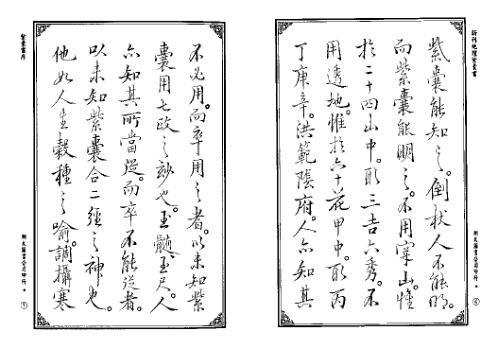 新刊地理紫囊書
紫囊能知之。倒杖人不能明。
而紫囊能明之。不用穿山。惟
於二十四山中。取三吉六秀。不
用透地。惟於六十花甲中。取丙
丁庚辛。洪範陰府。人亦知其
不必用。而卒用之者。以未知紫
囊用七政之妙也。玉髓玉尺。人
亦知其所當從。而卒不能從者。
以未知紫囊合二經之神也。
他如人生穀種之喻。調攝寒
紫囊序